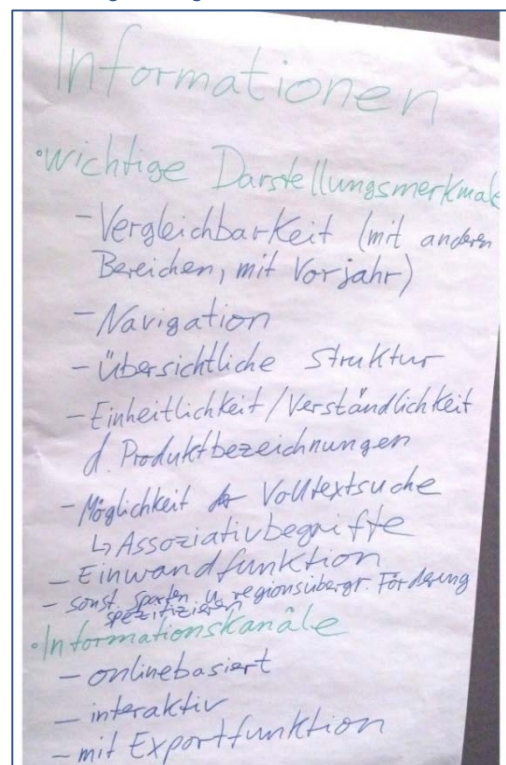 Informationen
• wichtige Darstellungsmerkmale
- Vergleichbarkeit (mit anderen
Bereichen, mit Vorjahr)
- Navigation
- Übersichtliche Struktur
- Einheitlichkeit / Verständlichkeit
d. Produktbezeichnungen
- Möglichkeit Volltextsuche
↳ Assoziativbegriffe
- Einwandfunktion
- sonst. sparten u. regionsübergr. Förderung
spezifizieren
• Informationskanäle
- onlinebasiert
- interaktiv
- mit Exportfunktion